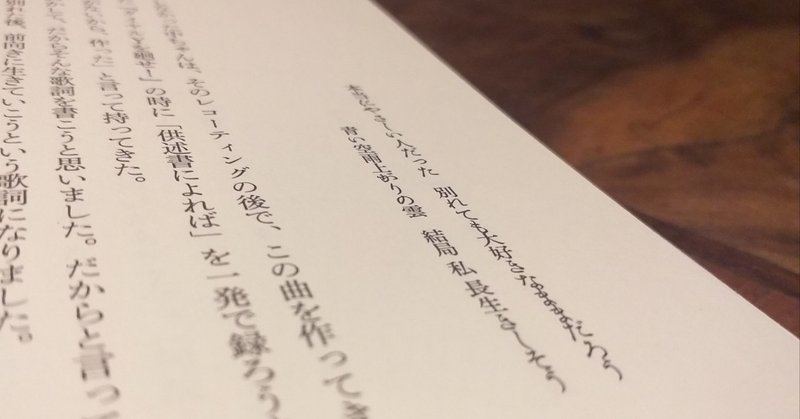 本当にやさしい人だった 別れても大好きなままだろう
青い空雨上がりの雲 結局 私 長生きしそう
は、そのレコーディングの後で、この曲を作ってき
の時に「供述書によれば」を一発で録ろう、
作った」と言って持ってきた。
だからそんな歌詞を書こうと思いました。だからと言っ
別れた後、前向きに生きていこうという歌詞になりました。